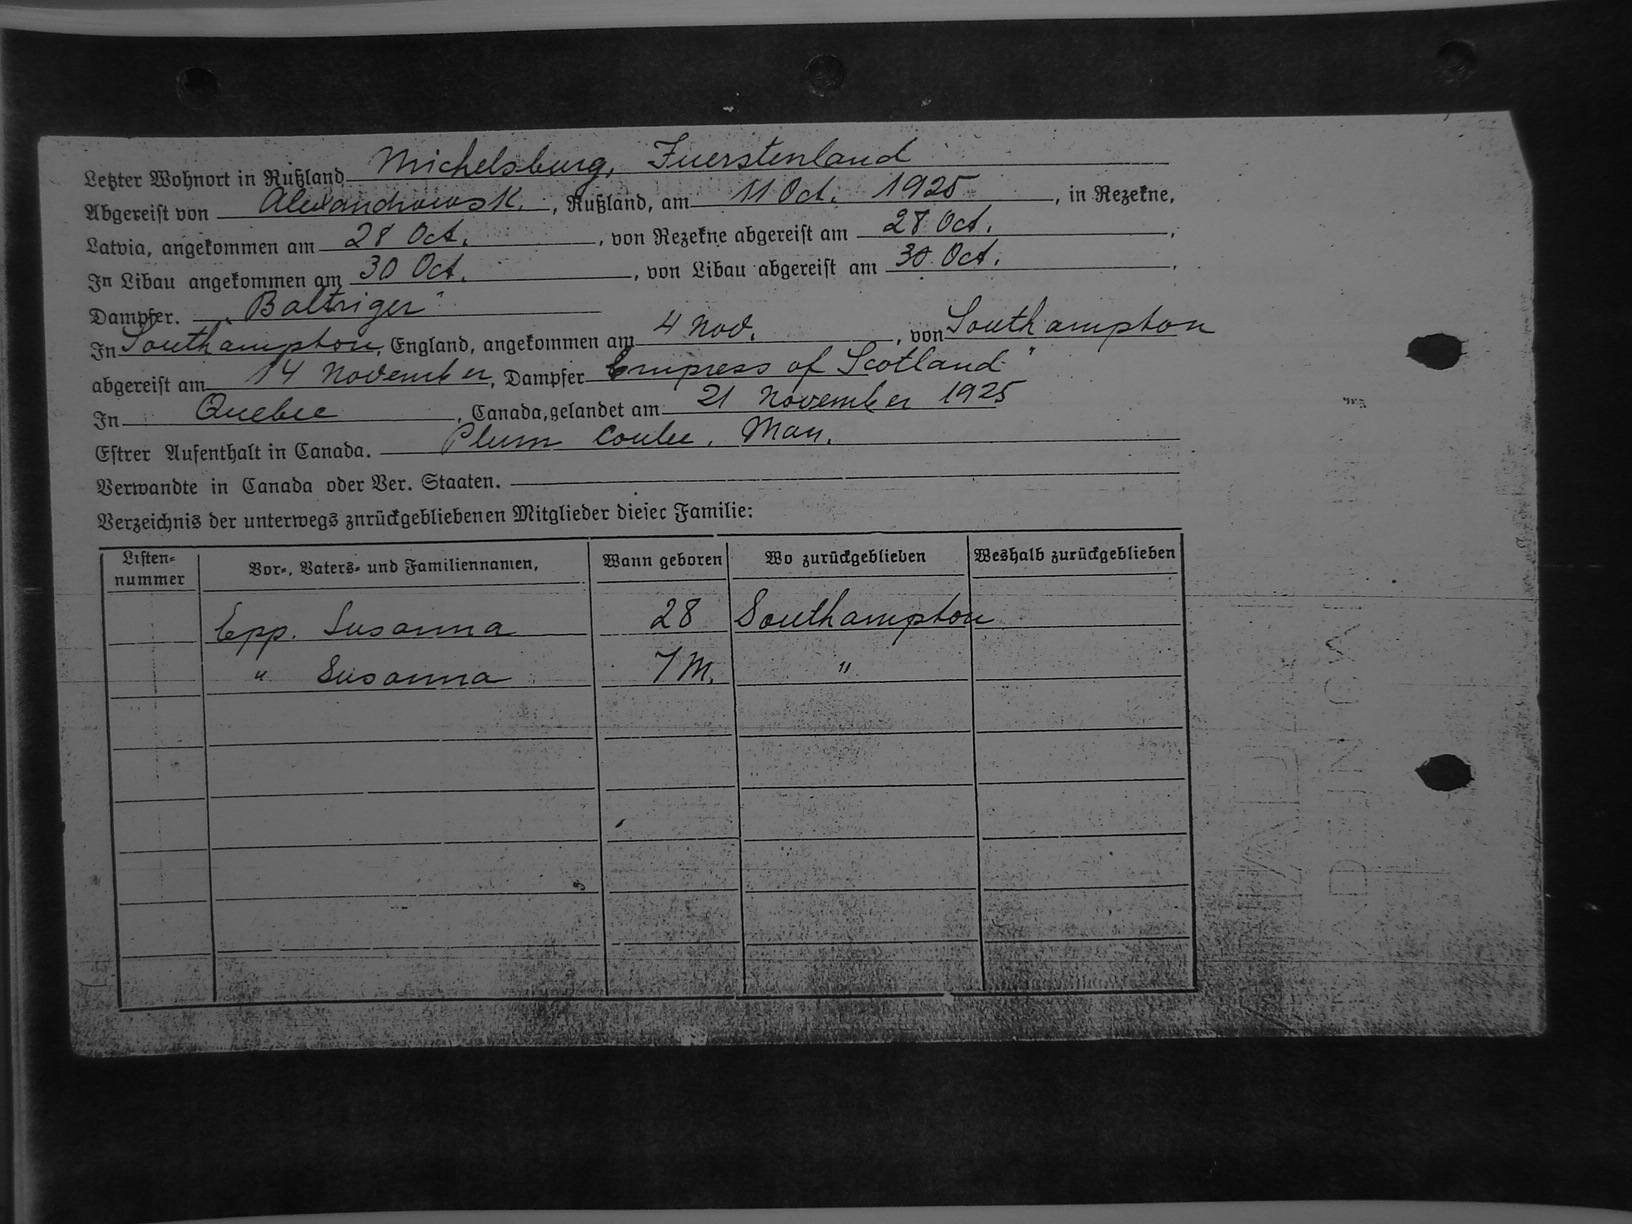 Letzter Wohnort in Rußland Michelsburg, Fuerstenland
Abgereist von Alexandrowsk, Rußland, am 11 Oct. 1925, in Rezekne,
Latvia, angekommen am 28 Oct., von Rezekne abgereist am 28 Oct.,
In Libau angekommen am 30 Oct., von Libau abgereist am 30 Oct.,
Dampfer. „Baltriger"
In Southampton, England, angekommen am 4 Nov., von Southampton
abgereist am 14 November, Dampfer Empress of Scotland"
In Quebec, Canada, gelandet am 21 November 1925
Estrer Aufenthalt in Canada. Plum Coulee, Man.
Verwandte in Canada oder Ver. Staaten.
Verzeichnis der unterwegs znrückgebliebenen Mitglieder diesec Familie:
Listen-nummer Vor-, Vaters- und Familiennamen, Wann geboren Wo zurückgeblieben Weshalb zurückgeblieben
Epp. Susanna 28 Southampton
" Susanna 7 M. "